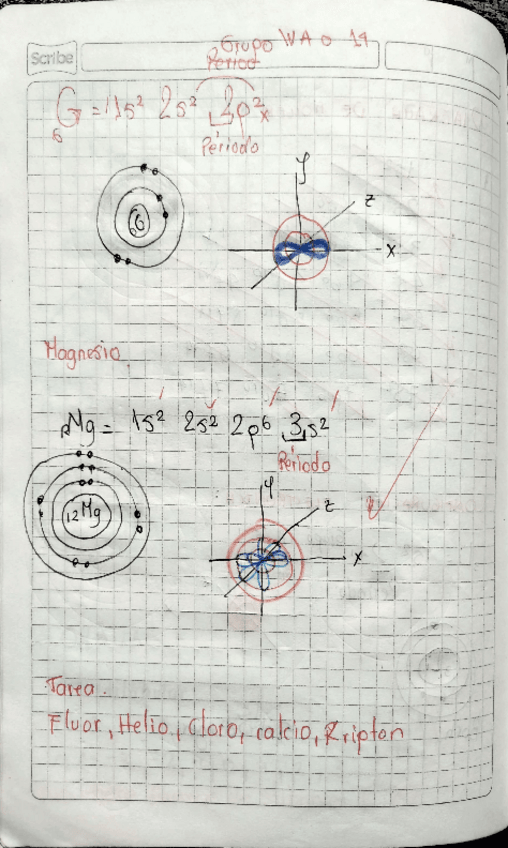 Scribe
Grupo IVA o 14
Period
₆C = 1s² 2s² 2p²x
Período
y
z
x
6
Magnesio
₁₂Mg = 1s² 2s² 2p⁶ 3s²
Período
y
z
x
12 Mg
Tarea.
Fluor, Helio, Cloro, calcio, Kripton